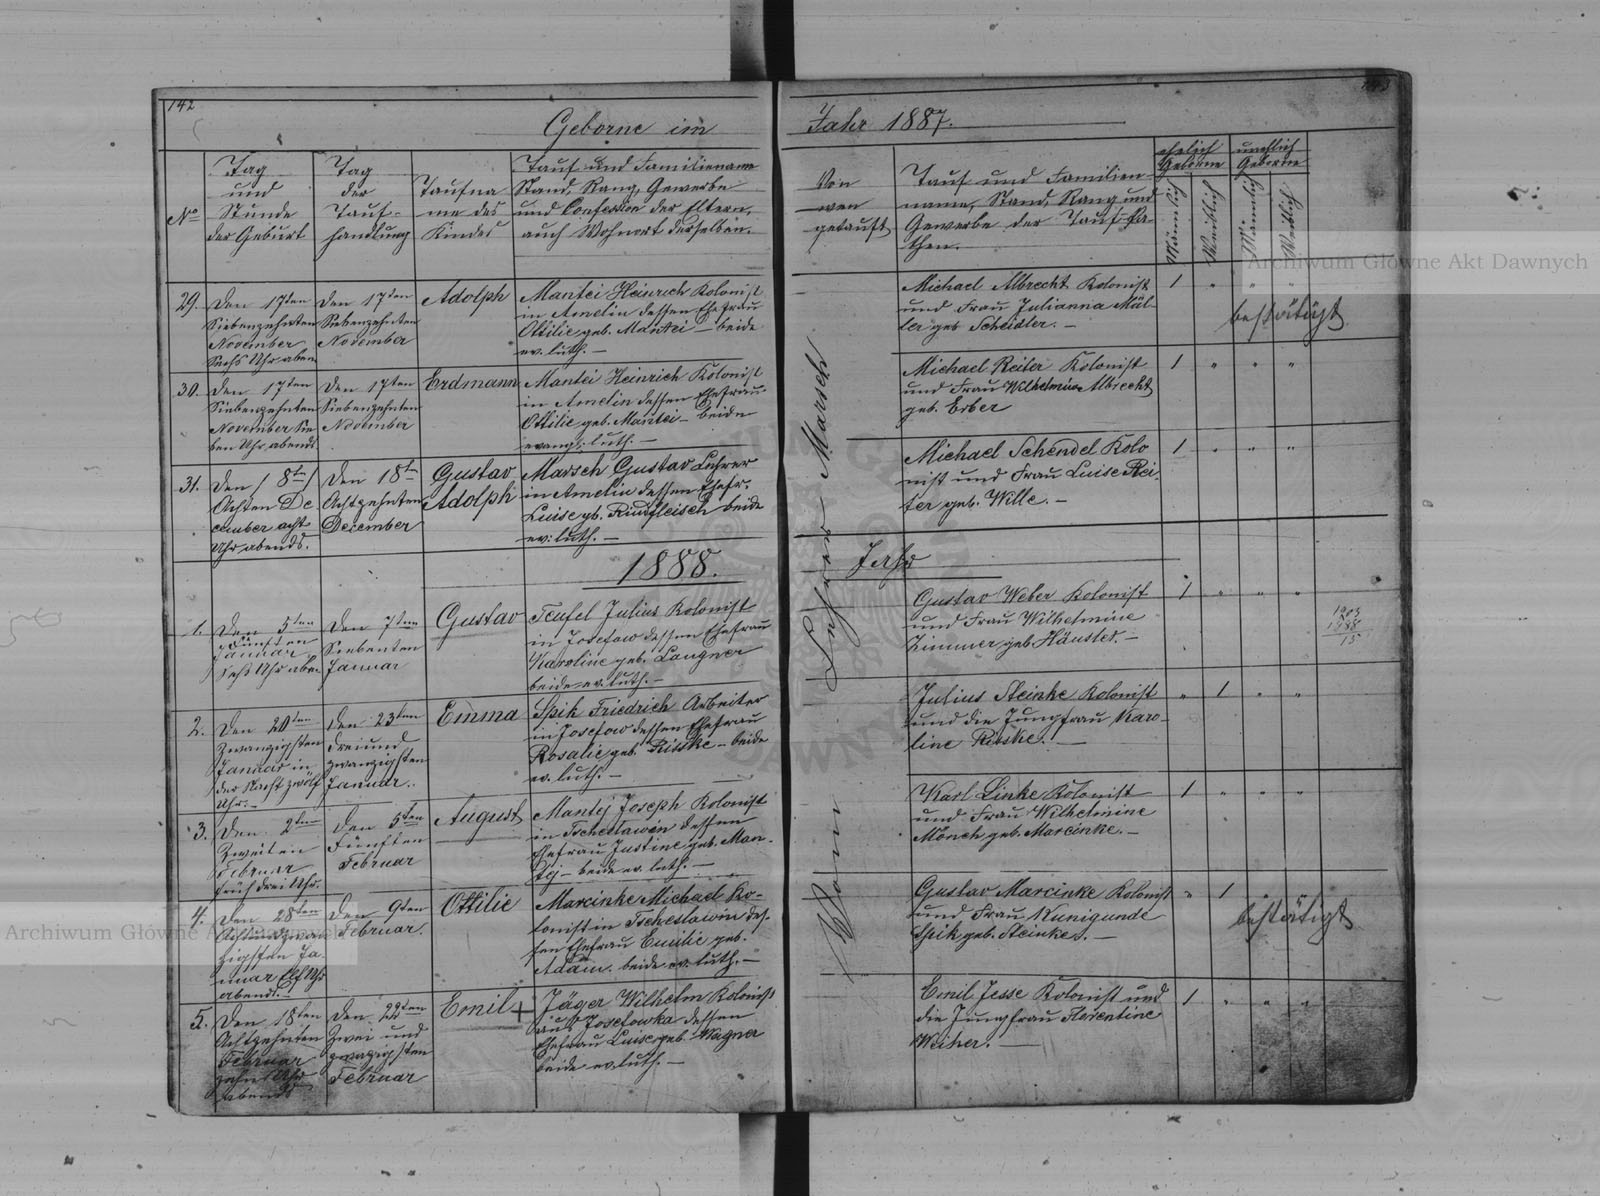 142
Geborne im Jahr 1887.
No
Tag
und
Stunde
der Geburt
Tag
der
Tauf-
handlung
Taufna
me des
Kindes
Tauf und Familienname
Stand, Rang, Gewerbe
und Confession der Eltern,
auch Wohnort derselben.
Von
wen
getauft
Tauf und Familien
name, Stand, Rang und
Gewerbe der Tauf-Pa-
then.
ehelich
Geborne
unehlich
Geborne
Männlich
Weiblich
Männlich
Weiblich
29.
Den 17ten
Siebenzehnten
November
Sechs Uhr aben
Den 17ten
Siebenzehnten
November
Adolph
Mantei Heinrich Kolonist
in Amelin dessen Ehefrau
Ottilie geb. Mantei – beide
ev. luth. –
Michael Albrecht Kolonist
und Frau Julianna Mül-
ler geb Scheidler. –
1 " " "
bestätigt
30.
Den 17ten
Siebenzehnten
November Sie
ben Uhr abends
Den 17ten
Siebenzehnten
November
Erdmann
Mantei Heinrich Kolonist
in Amelin dessen Ehefrau
Ottilie geb. Mantei – beide
evang. luth. –
Michael Reiter Kolonist
und Frau Wilhelmine Albrecht
geb. Erber
1 " " "
31.
Den / 8ten /
Achten De
cember acht
Uhr abends.
Den 18ten
Achtzehnten
December
Gustav
Adolph
Marsch Gustav Lehrer
in Amelin dessen Ehefr.
Luise gb. Rindfleisch beide
ev. luth. –
Michael Schendel Kolo
nist und Frau Luise Rei-
ter geb. Wille. –
1 " " "
Lehrer Marsch
1888.
Jahr
1.
Den 5ten
Fünften
Januar
Sechs Uhr aben
Den 7ten
Siebenten
Januar
Gustav
Teufel Julius Kolonist
in Josefow dessen Ehefrau
Karoline geb. Langner
beide ev. luth. –
Gustav Weber Kolonist
und Frau Wilhelmine
Zimmer geb Häusler. –
1 " " "
1903
1888
15
2.
Den 20ten
Zwanzigsten
Januar in
der Nacht zwölf
Uhr. –
Den 23ten
Dreiund
zwanzigsten
Januar.
Emma
Spik Friedrich Arbeiter
in Josefow dessen Ehefrau
Rosalie geb. Ritske – beide
ev. luth. –
Julius Steinke Kolonist
und die Jungfrau Karo-
line Ritske. –
" 1 " "
3.
Den 2ten
Zweiten
Februar
früh drei Uhr.
Den 5ten
Fünften
Februar
August
Mantej Joseph Kolonist
in Tscheslawin dessen
Ehefrau Justine geb. Man-
tej – beide ev. luth. –
Karl Linke Kolonist
und Frau Wilhelmine
Mönch geb. Marcinke. –
1 " " "
4.
Den 28ten
Achtundzwan
zigsten Ja-
nuar Elf Uhr
abends. –
Den 9ten
Februar.
Ottilie
Marcinke Michael Ko-
lonist in Tscheslawin des-
sen Ehefrau Emilie geb.
Adam. beide ev. luth. –
Gustav Marcinke Kolonist
und Frau Kunigunde
Spik geb. Steinke. –
" 1 " "
bestätigt
5.
Den 18ten
Achtzehnten
Februar
zehn Uhr
Abends
Den 22ten
Zwei und
zwanzigsten
Februar
Emil +
Jäger Wilhelm Kolonist
aus Josefowka dessen
Ehefrau Luise geb. Wagner
beide ev. luth. –
Emil Jesse Kolonist und
die Jungfrau Florentine
Weiher. –
1 " " "
Archiwum Główne Akt Dawnych
Archiwum Główne Akt Dawnych